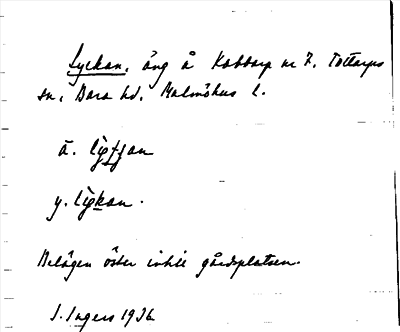 Lyckan, äng å Kabbarp nr 7, Tottarps
sn, Bara hd, Malmöhus l.
ä. lykkjan
y. lykkan.
Belägen öster intill gårdsplatsen.
I. Ingers 1936